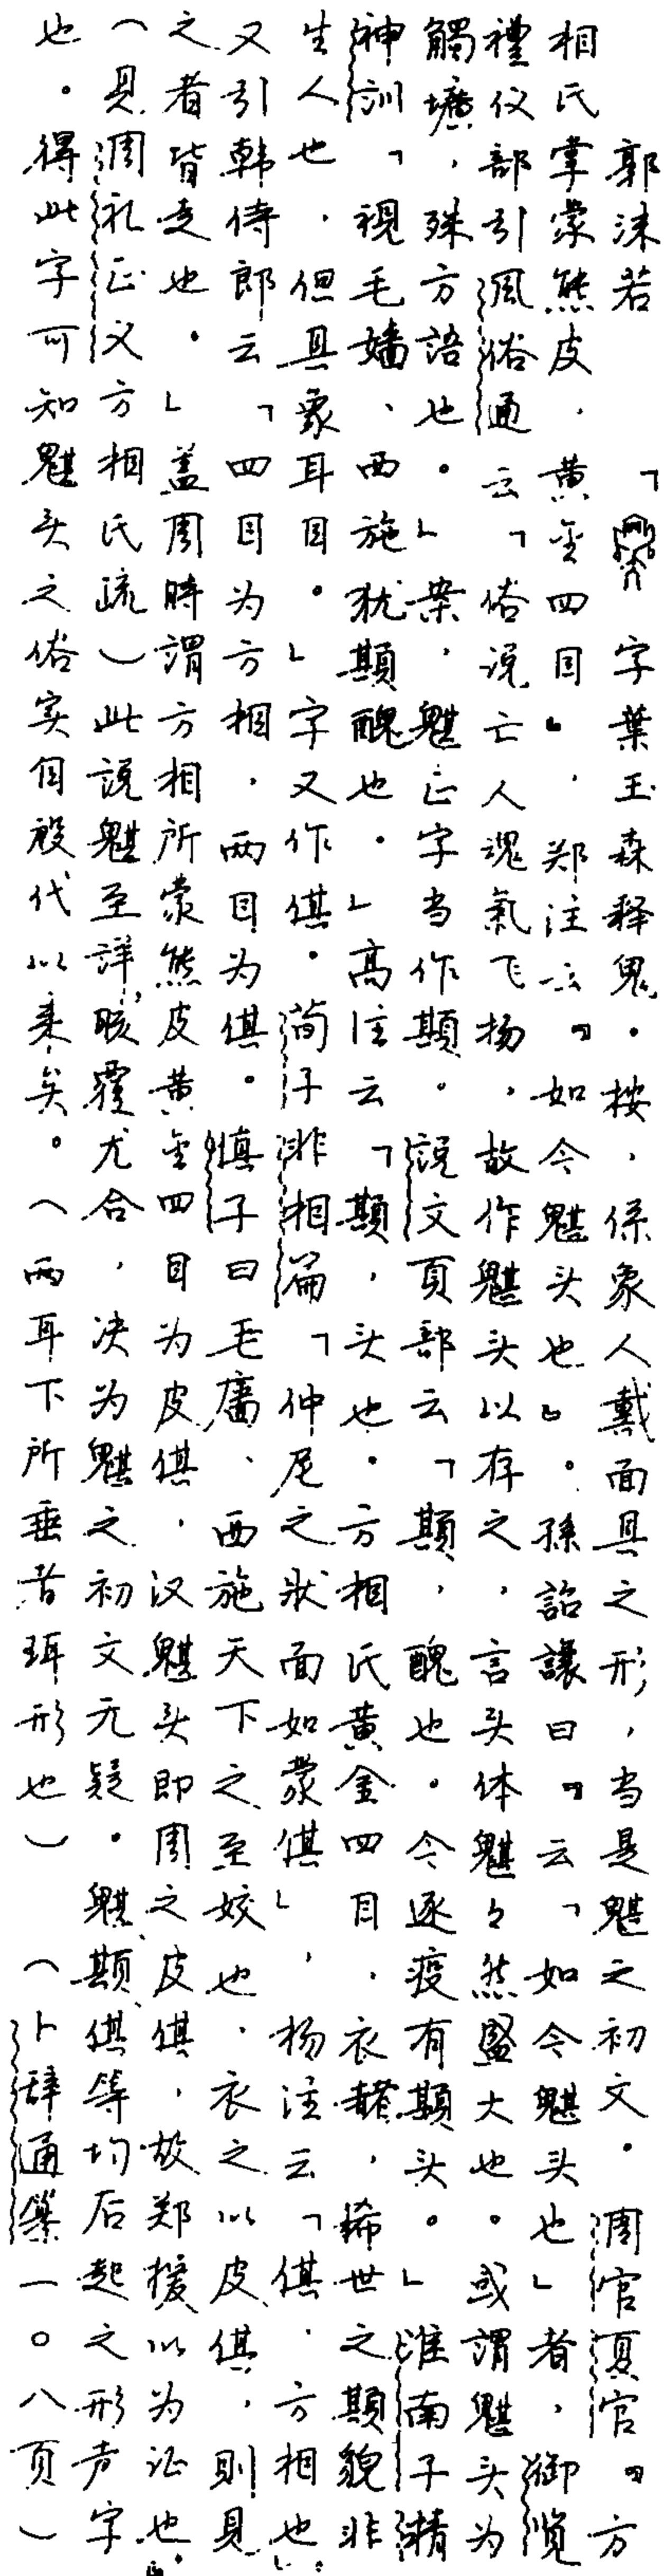 郭沫若 「 字葉玉森释鬼。按，係象人戴面具之形，当是魌之初文。周官夏官『方
相氏掌蒙熊皮，黄金四目』，郑注云『如今魌头也』。孫詒讓曰『云「如今魌头也」者，御览
禮仪部引風俗通云「俗说亡人魂氣飞扬，故作魌头以存之，言头体魌々然盛大也。或謂魌头为
觸壙，殊方語也。」案，魌正字当作䫏。説文頁部云「䫏，醜也。今逐疫有䫏头。」淮南子精
神訓「視毛嬙、西施犹䫏醜也。」高注云「䫏，头也。方相氏黄金四目，衣赭，稀世之䫏貌非
生人也，但具象耳目。」字又作倛。荀子非相篇「仲尼之狀面如蒙倛」，杨注云「倛，方相也」。
又引韩侍郎云「四目为方相，两目为倛。慎子曰毛廧、西施天下之至姣也，衣之以皮倛，則見
之者皆走也。」盖周時謂方相所蒙熊皮黄金四目为皮倛，汉魌头即周之皮倛，故郑援以为证也。』
（見周礼正义方相氏疏）此說魌至詳，晐覈尤合，决为魌之初文无疑。魌、䫏、倛等均后起之形声字
也。得此字可知魌头之俗实自殷代以来矣。（两耳下所垂者珥形也）（卜辞通纂一○八页）